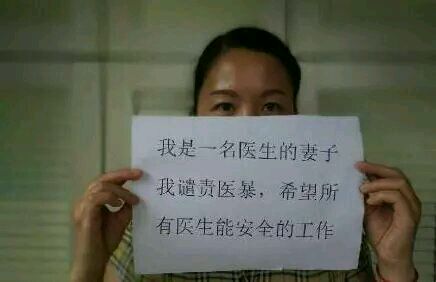 我是一名医生的妻子
我谴责医暴，希望所
有医生能安全的工作